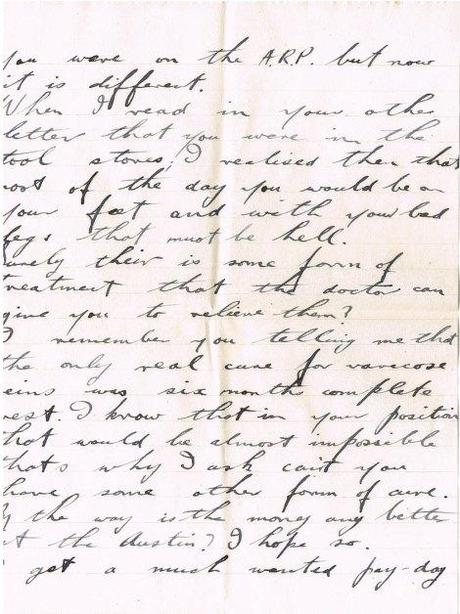 you were on the A.R.P. but now
it is different.
When I read in your other
letter that you were in the
tool stores, I realised then that
most of the day you would be on
your feet and with your bad
legs that must be hell.
surely their is some form of
treatment that the doctor can
give you to relieve them?
I remember you telling me that
the only real cure for varicose
veins was six month complete
rest. I know that in your position
that would be almost impossible
thats why I ask cait you
have some other form of cure.
By the way is the money any better
at the Austin? I hope so.
I get a much wanted pay-day